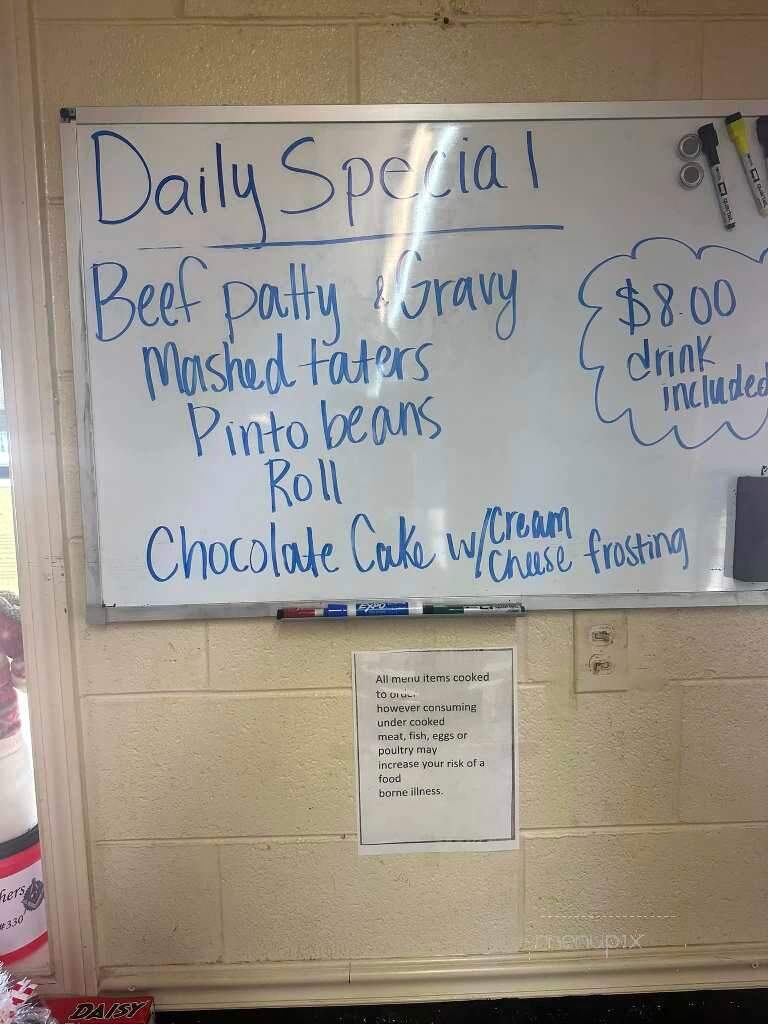 Daily Special
Beef patty & Gravy
Mashed taters
Pinto beans
Roll
Chocolate Cake w/ Cream Cheese frosting
$8.00
drink
included
EXPO
All menu items cooked
to order
however consuming
under cooked
meat, fish, eggs or
poultry may
increase your risk of a
food
borne illness.
hers
#330
DAISY
menupix